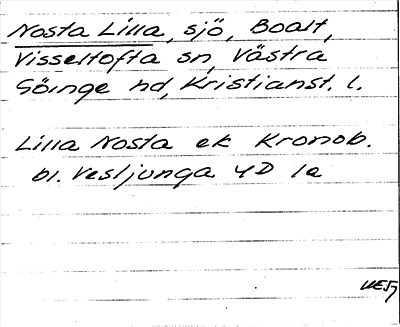 Nosta Lilla, sjö, Boalt,
Visseltofta sn, Västra
Göinge hd, Kristianst. l.
Lilla Nosta ek Kronob.
bl. Vesljunga 4D 1a